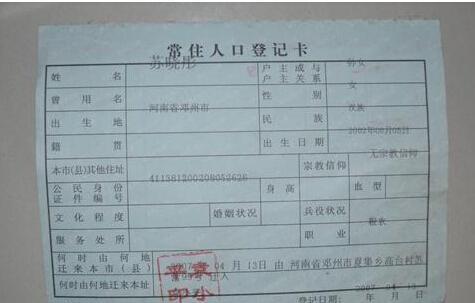 常住人口登记卡
姓 名 苏晓彤 户主或与户主关系 孙女
曾用名 性别 女
出生地 河南省邓州市 民族 汉族
籍贯 出生日期 2002年08月05日
本市(县)其他住址 宗教信仰 无宗教信仰
公民身份证件编号 411381200208052626 身高 血型
文化程度 婚姻状况 兵役状况
服务处所 职业 粮农
何时由何地迁来本市(县) 2007 04月13日由河南省邓州市夏集乡高台村
何时由何地迁来本址
登记日期 2007 04 13